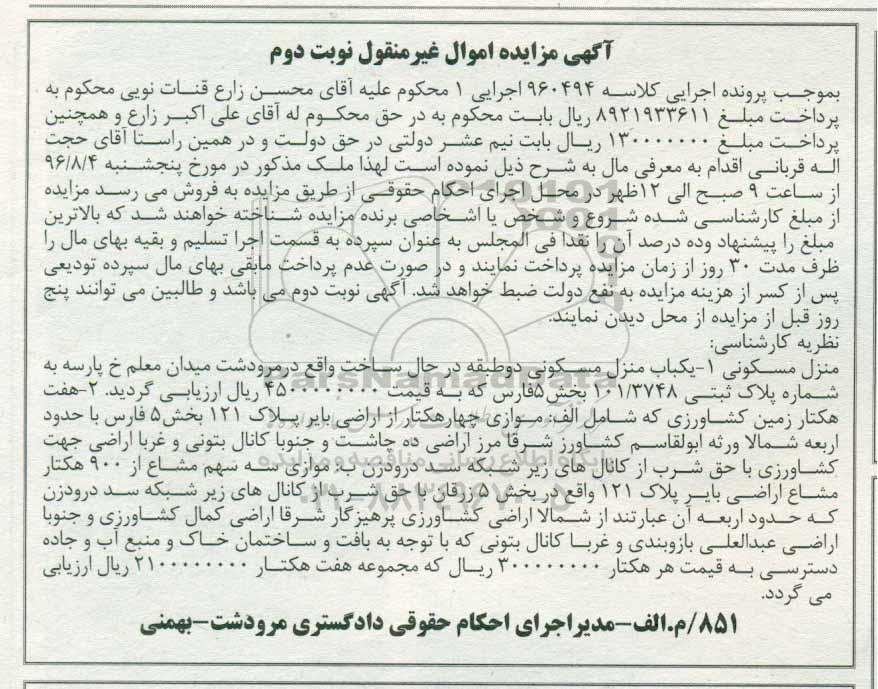 آگهی مزایده اموال غیرمنقول نوبت دوم
بموجب پرونده اجرایی کلاسه ۹۶۰۴۹۴ اجرایی ۱ محکوم علیه آقای محسن زارع قنات نویی محکوم به
پرداخت مبلغ ۸۹۲۱۹۳۳۶۱۱ ریال بابت محکوم به در حق محکوم له آقای علی اکبر زارع و همچنین
پرداخت مبلغ ۱۳۰۰۰۰۰۰۰ ریال بابت نیم عشر دولتی در حق دولت و در همین راستا آقای حجت
اله قربانی اقدام به معرفی مال به شرح ذیل نموده است لهذا ملک مذکور در مورخ پنجشنبه ۹۶/۸/۴
از ساعت ۹ صبح الی ۱۲ظهر در محل اجرای احکام حقوقی از طریق مزایده به فروش می رسد مزایده
از مبلغ کارشناسی شده شروع وشخص یا اشخاصی برنده مزایده شناخته خواهند شد که بالاترین
مبلغ را پیشنهاد وده درصد آن را نقدا فی المجلس به عنوان سپرده به قسمت اجرا تسلیم و بقیه بهای مال را
ظرف مدت ۳۰ روز از زمان مزایده پرداخت نمایند و در صورت عدم پرداخت مابقی بهای مال سپرده تودیعی
پس از کسر از هزینه مزایده به نفع دولت ضبط خواهد شد. آگهی نوبت دوم می باشد و طالبین می توانند پنج
روز قبل از مزایده از محل دیدن نمایند.
نظریه کارشناسی:
منزل مسکونی ۱-یکباب منزل مسکونی دوطبقه در حال ساخت واقع در مرودشت میدان معلم خ پارسه به
شماره پلاک ثبتی ۱۰۱/۳۷۴۸ بخش۵فارس که به قیمت ۴۵۰۰۰۰۰۰۰۰ ریال ارزیابی گردید. ۲-هفت
هکتار زمین کشاورزی که شامل الف: موازی چهارهکتار از اراضی بایر پلاک ۱۲۱ بخش۵ فارس با حدود
اربعه شمالا ورثه ابولقاسم کشاورز شرقا مرز اراضی ده چاشت و جنوبا کانال بتونی و غربا اراضی جهت
کشاورزی با حق شرب از کانال های زیر شبکه سد درودزن ب: موازی سه سهم مشاع از ۹۰۰ هکتار
مشاع اراضی بایر پلاک ۱۲۱ واقع در بخش ۵ زرقان با حق شرب از کانال های زیر شبکه سد درودزن
که حدود اربعه آن عبارتند از شمالا اراضی کشاورزی پرهیزگار شرقا اراضی کمال کشاورزی و جنوبا
اراضی عبدالعلی بازوبندی و غربا کانال بتونی که با توجه به بافت و ساختمان خاک و منبع آب و جاده
دسترسی به قیمت هر هکتار ۳۰۰۰۰۰۰۰۰ ریال که مجموعه هفت هکتار ۲۱۰۰۰۰۰۰۰۰ ریال ارزیابی
می گردد.
۸۵۱/م.الف-مدیراجرای احکام حقوقی دادگستری مرودشت-بهمنی
ParsNamadData
پایگاه اطلاع رسانی مناقصه و مزایده